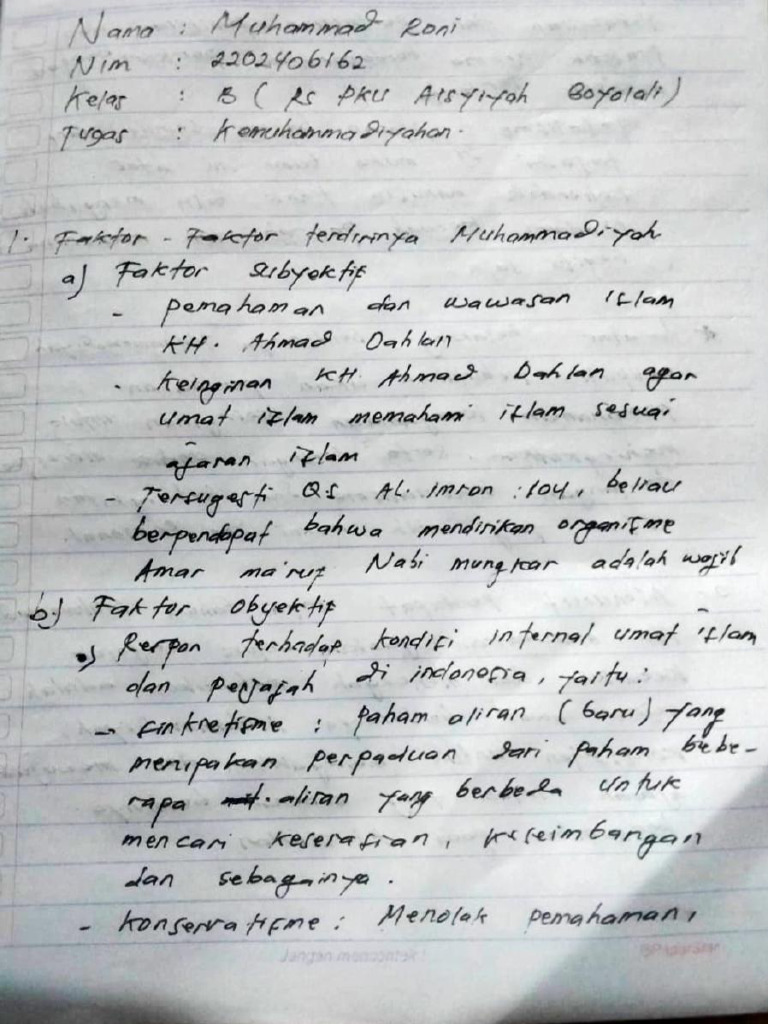 Nama : Muhammad Roni
Nim : 2202406162
Kelas : B ( RS PKU Aisyiyah Boyolali )
Tugas : Kemuhammadiyahan.
1. Faktor - Faktor terdirinya Muhammadiyah
a) Faktor subyektif
- pemahaman dan wawasan islam
KH. Ahmad Dahlan
- keinginan KH. Ahmad Dahlan agar
umat islam memahami islam sesuai
ajaran islam
- Tersugesti QS AL. imron : 104, beliau
berpendapat bahwa mendirikan organisme
Amar ma'ruf Nabi mungkar adalah wajib
b) Faktor obyektif
•) Respon terhadap kondisi internal umat islam
dan penjajah di indonesia, yaitu :
- sinkretisme : paham aliran ( baru ) yang
merupakan perpaduan dari paham bebe-
rapa aliran yang berbeda untuk
mencari keserasian, keseimbangan
dan sebagainya.
- konservatisme : Menolak pemahaman,
Jangan mencontek !